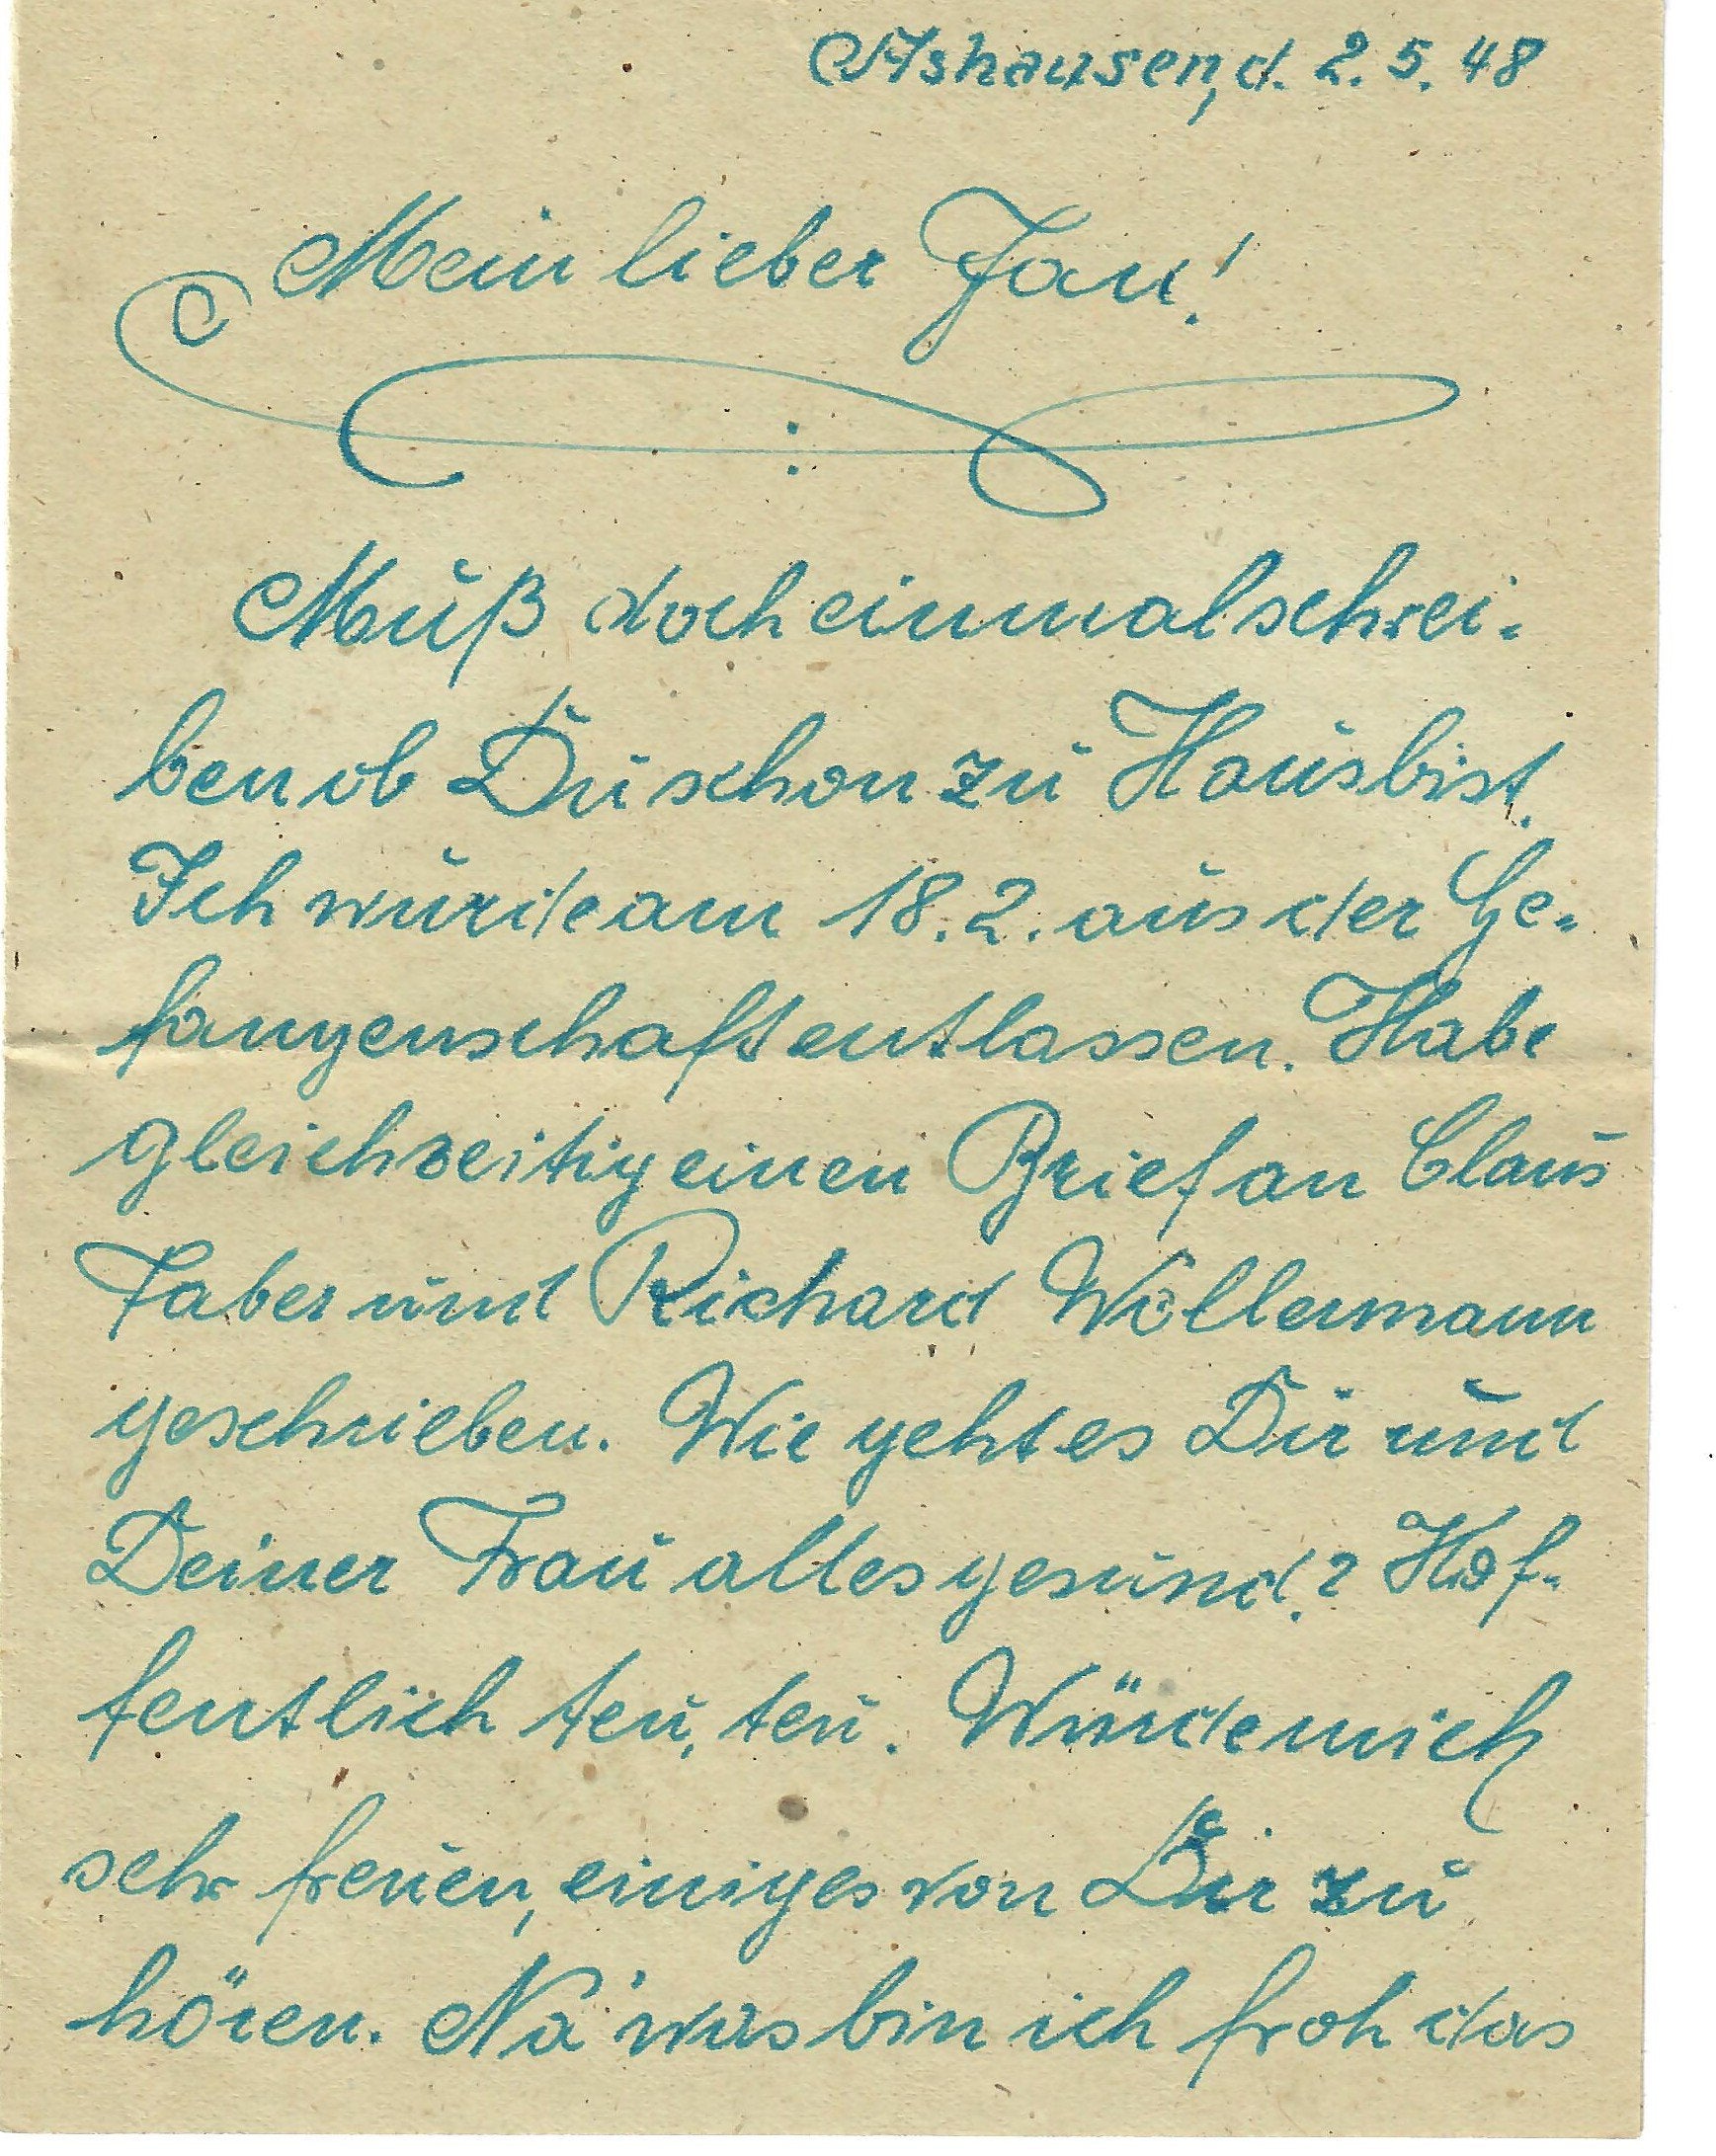 Ashausen, d. 2.5.48
Mein lieber Jan!
Muß doch einmal schrei-
ben ob Du schon zu Haus bist.
Ich wurde am 18.2. aus der Ge-
fangenschaft entlassen. Habe
gleichzeitig einen Brief an Claus
Faber und Richard Wöllermann
geschrieben. Wie geht es Dir und
Deiner Frau alles gesund? Hof-
fentlich teu, teu. Würde mich
sehr freuen, einiges von Dir zu
hören. Na was bin ich froh das